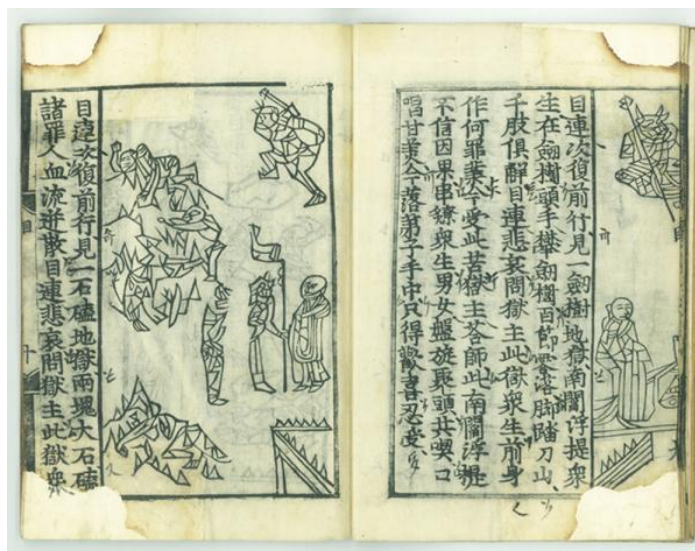 目連次復前行見一劒樹地獄南閻浮提衆
生在劒樹頭手攀劒樹百節零落脚踏刀山
千股俱解目連悲哀問獄主此獄衆生前身
作何罪業今受此苦獄主答師此南閻浮提
不信因果串鐐衆生男女盤旋聚頭共喫口
唱甘美今落弟子手中只得歡喜忍受
目連次復前行見一石磕地獄兩塊大石磕
諸罪人血流迸散目連悲哀問獄主此獄衆